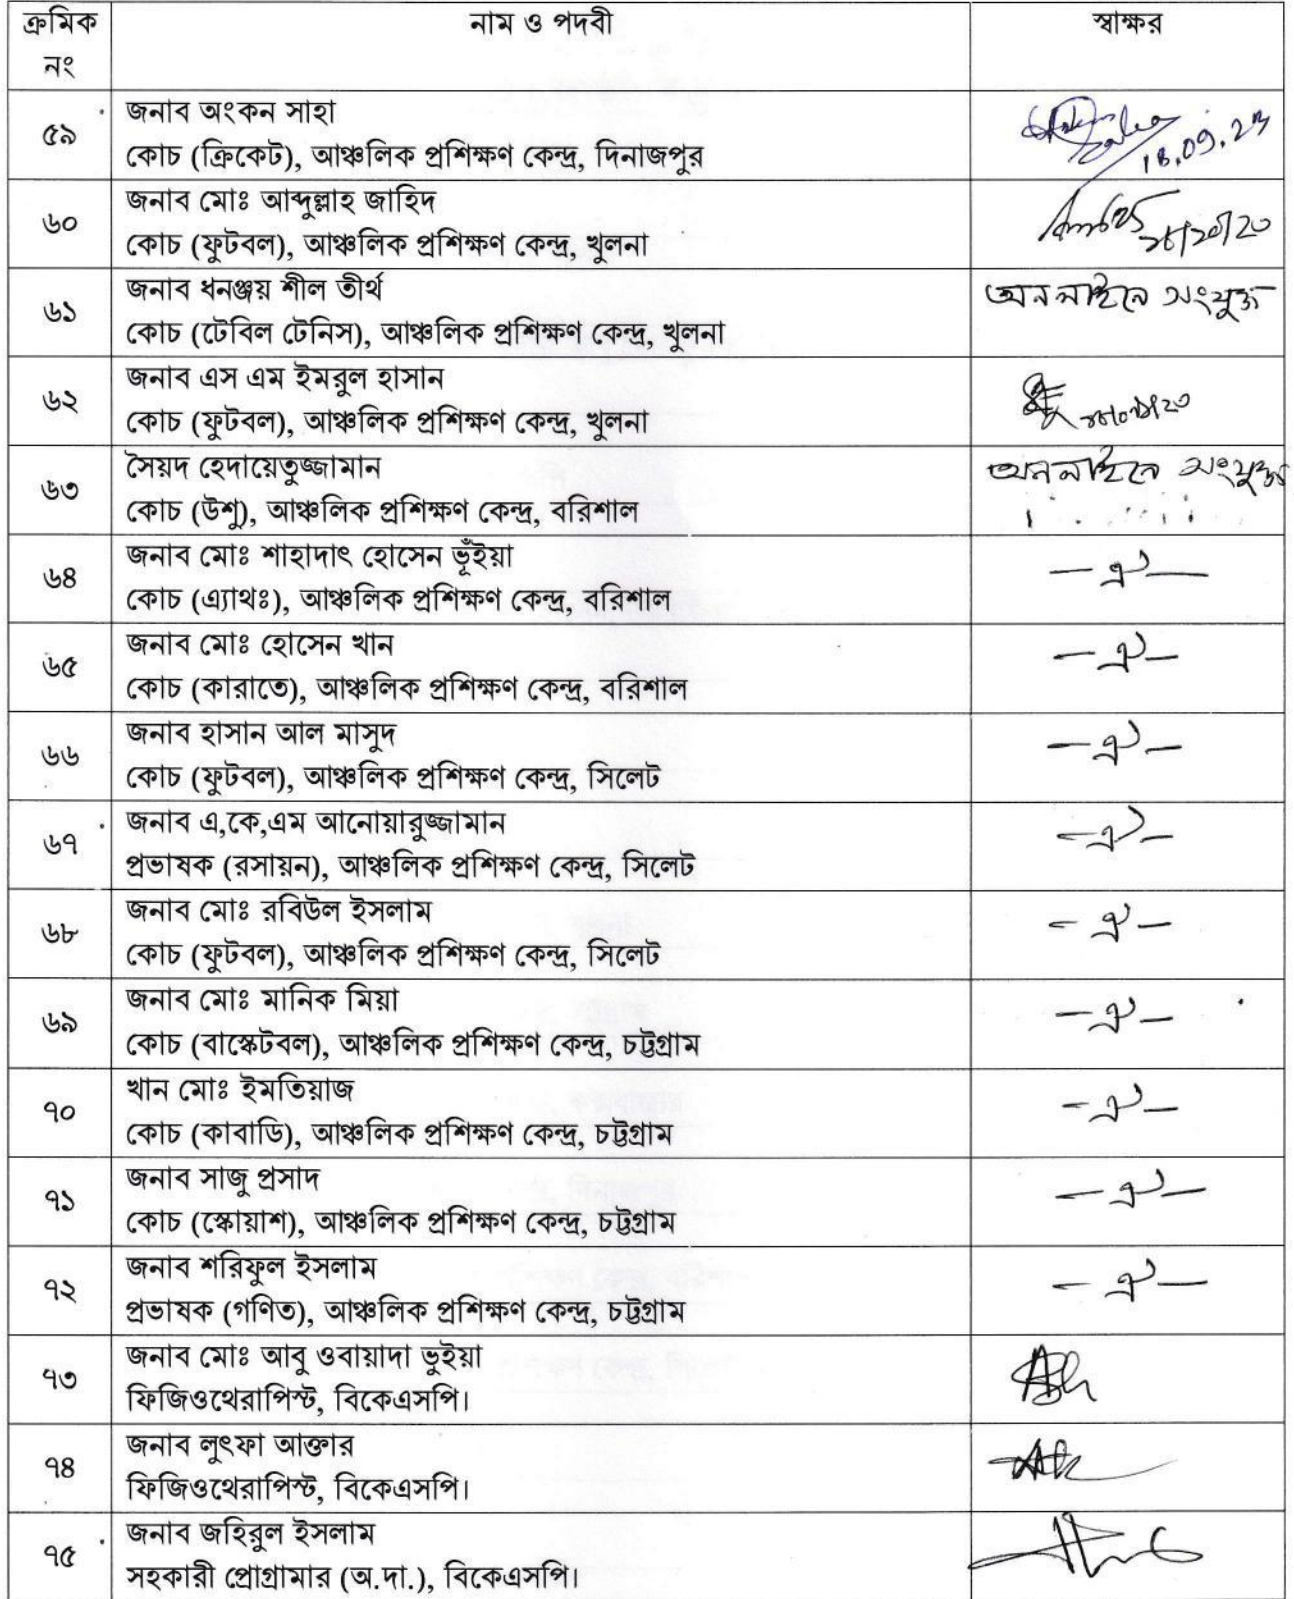 ক্রমিক নং নাম ও পদবী স্বাক্ষর
৫৯ জনাব অংকন সাহা
কোচ (ক্রিকেট), আঞ্চলিক প্রশিক্ষণ কেন্দ্র, দিনাজপুর 18.09.23
৬০ জনাব মোঃ আব্দুল্লাহ জাহিদ
কোচ (ফুটবল), আঞ্চলিক প্রশিক্ষণ কেন্দ্র, খুলনা
৬১ জনাব ধনঞ্জয় শীল তীর্থ অনলাইনে সংযুক্ত
কোচ (টেবিল টেনিস), আঞ্চলিক প্রশিক্ষণ কেন্দ্র, খুলনা
৬২ জনাব এস এম ইমরুল হাসান
কোচ (ফুটবল), আঞ্চলিক প্রশিক্ষণ কেন্দ্র, খুলনা
৬৩ সৈয়দ হেদায়েতুজ্জামান অনলাইনে সংযুক্ত
কোচ (উশু), আঞ্চলিক প্রশিক্ষণ কেন্দ্র, বরিশাল
৬৪ জনাব মোঃ শাহাদাৎ হোসেন ভূঁইয়া —ঐ—
কোচ (এ্যাথঃ), আঞ্চলিক প্রশিক্ষণ কেন্দ্র, বরিশাল
৬৫ জনাব মোঃ হোসেন খান —ঐ—
কোচ (কারাতে), আঞ্চলিক প্রশিক্ষণ কেন্দ্র, বরিশাল
৬৬ জনাব হাসান আল মাসুদ —ঐ—
কোচ (ফুটবল), আঞ্চলিক প্রশিক্ষণ কেন্দ্র, সিলেট
৬৭ জনাব এ,কে,এম আনোয়ারুজ্জামান —ঐ—
প্রভাষক (রসায়ন), আঞ্চলিক প্রশিক্ষণ কেন্দ্র, সিলেট
৬৮ জনাব মোঃ রবিউল ইসলাম —ঐ—
কোচ (ফুটবল), আঞ্চলিক প্রশিক্ষণ কেন্দ্র, সিলেট
৬৯ জনাব মোঃ মানিক মিয়া —ঐ—
কোচ (বাস্কেটবল), আঞ্চলিক প্রশিক্ষণ কেন্দ্র, চট্টগ্রাম
৭০ খান মোঃ ইমতিয়াজ —ঐ—
কোচ (কাবাডি), আঞ্চলিক প্রশিক্ষণ কেন্দ্র, চট্টগ্রাম
৭১ জনাব সাজু প্রসাদ —ঐ—
কোচ (স্কোয়াশ), আঞ্চলিক প্রশিক্ষণ কেন্দ্র, চট্টগ্রাম
৭২ জনাব শরিফুল ইসলাম —ঐ—
প্রভাষক (গণিত), আঞ্চলিক প্রশিক্ষণ কেন্দ্র, চট্টগ্রাম
৭৩ জনাব মোঃ আবু ওবায়াদা ভুইয়া
ফিজিওথেরাপিস্ট, বিকেএসপি।
৭৪ জনাব লুৎফা আক্তার
ফিজিওথেরাপিস্ট, বিকেএসপি।
৭৫ জনাব জহিরুল ইসলাম
সহকারী প্রোগ্রামার (অ.দা.), বিকেএসপি।